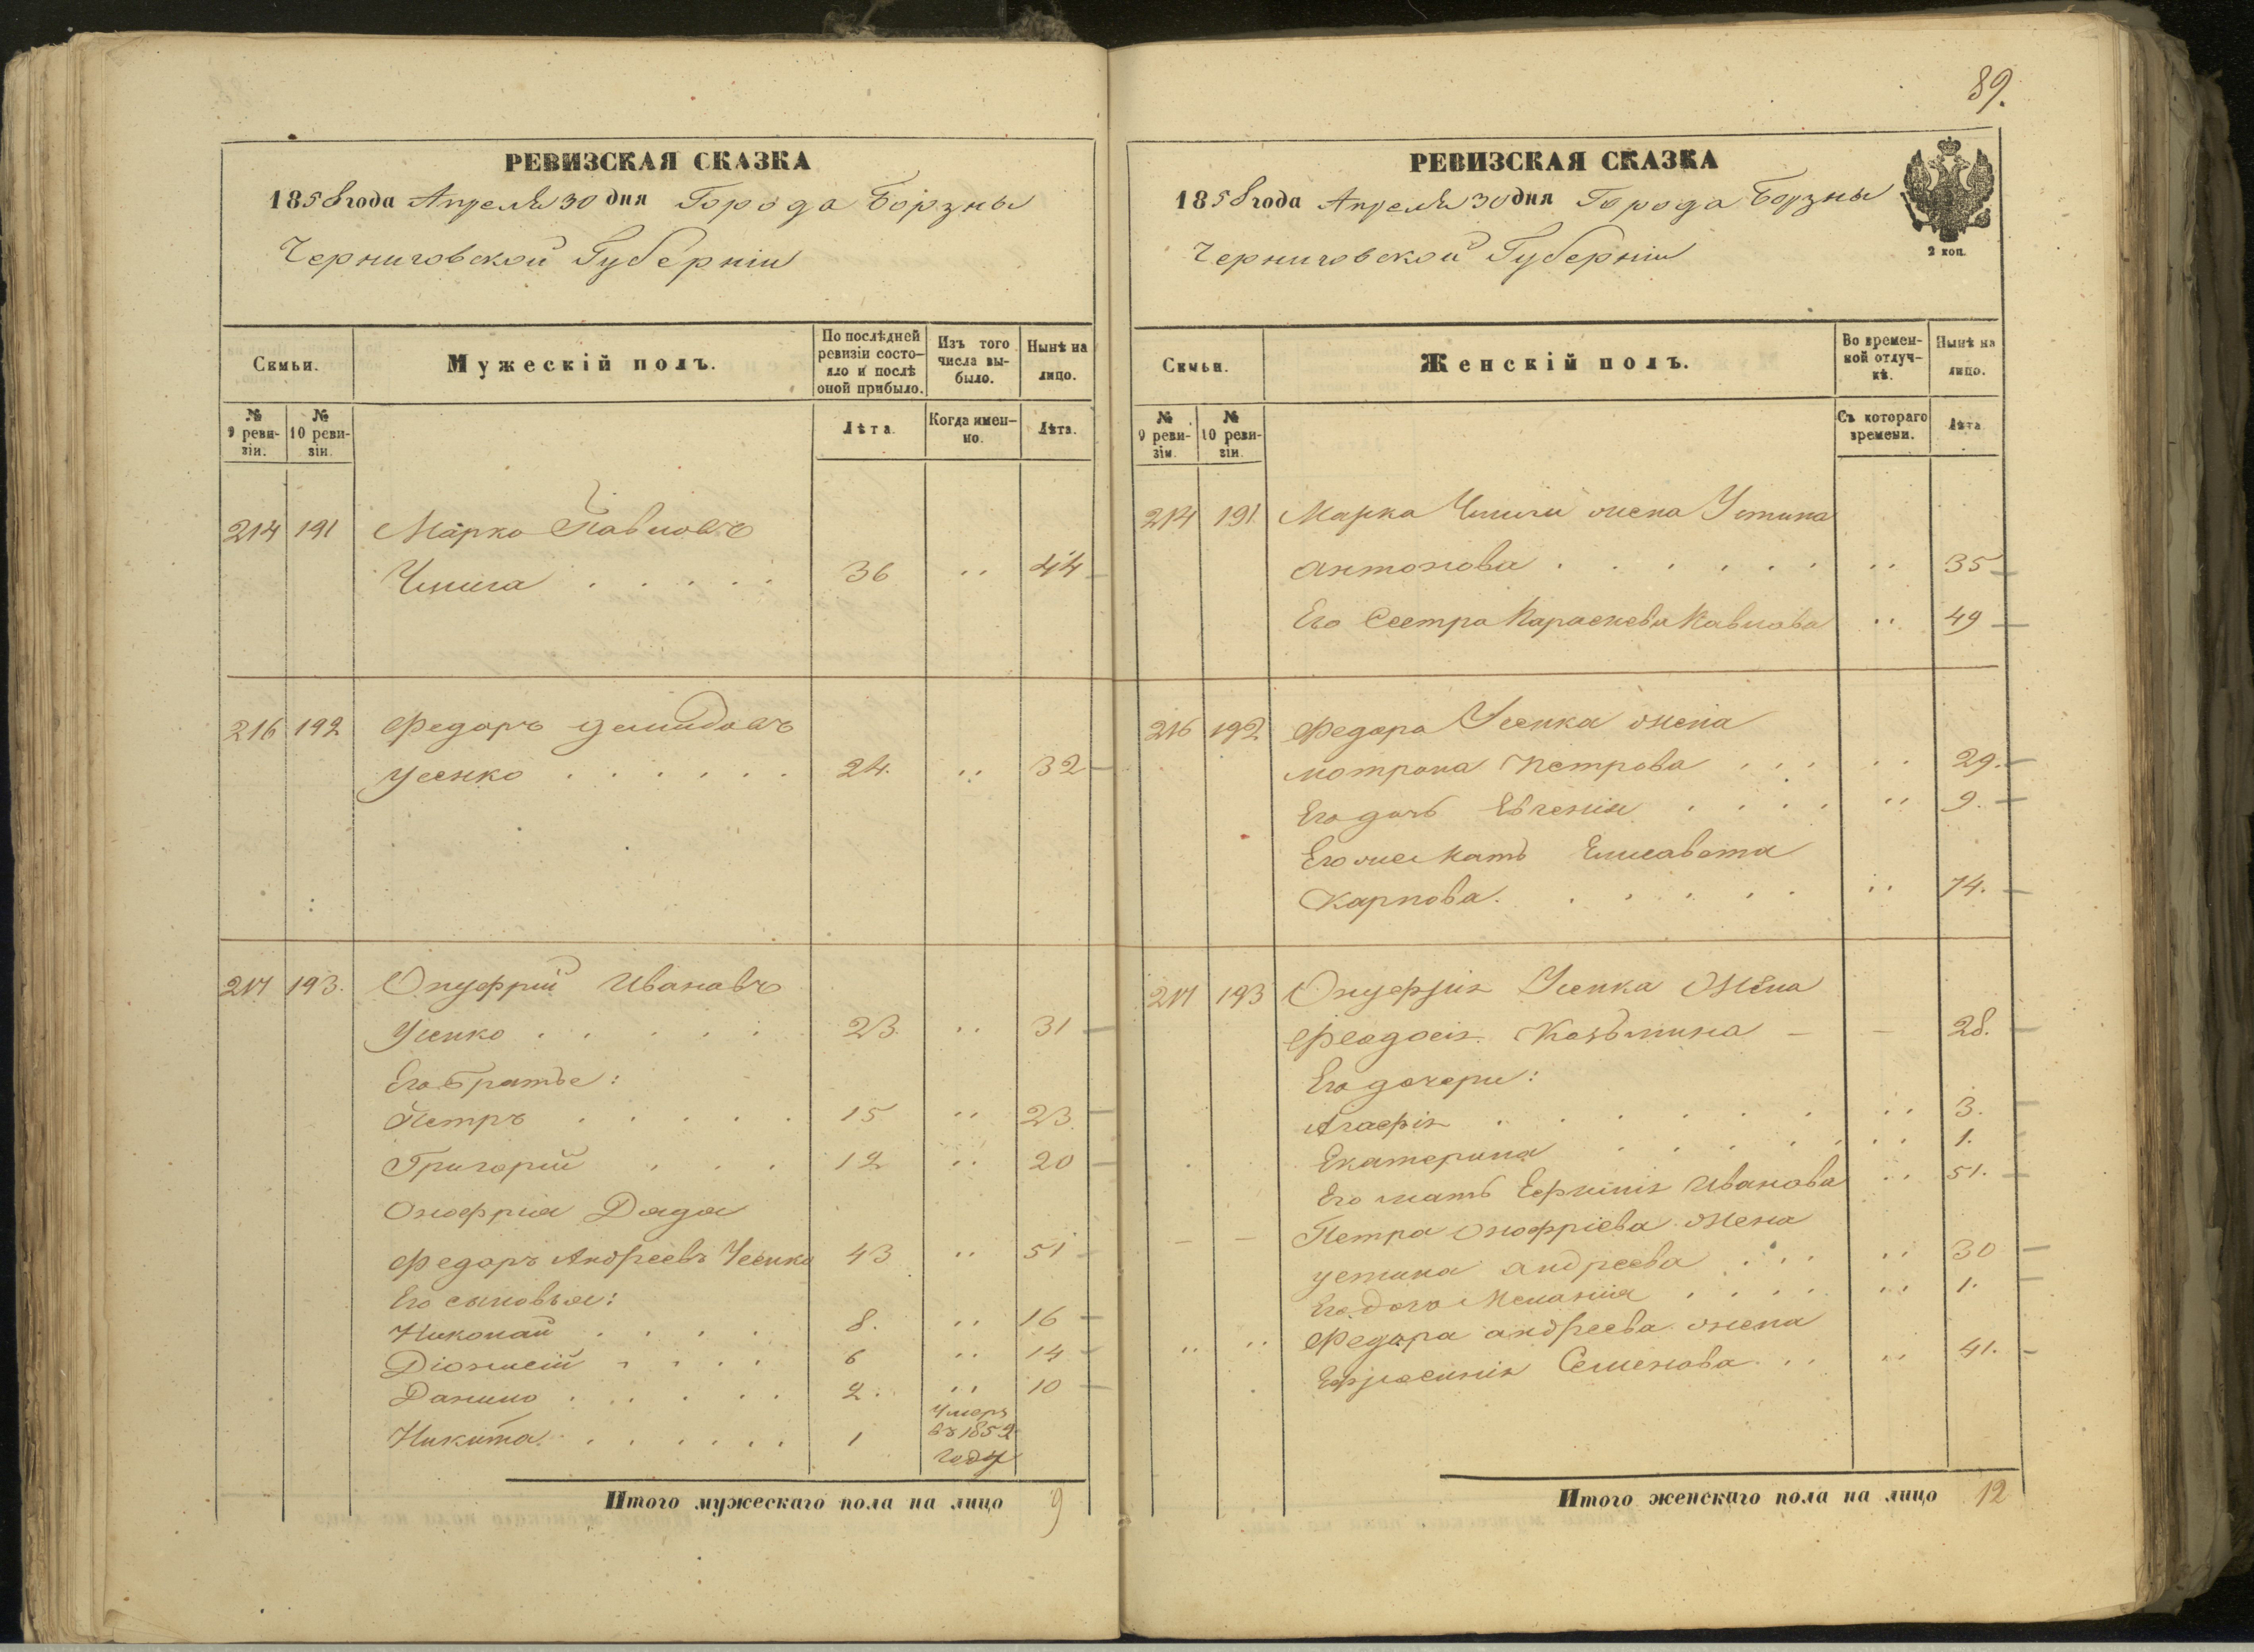 РЕВИЗСКАЯ СКАЗКА
1858 года Апреля 30 дня Города Борзны
Черниговской Губерніи
Семьи.
Мужескій полъ.
По послѣдней ревизіи состояло и послѣ оной прибыло.
Изъ того числа выбыло.
Нынѣ на лицо.
№ 9 ревизіи.
№ 10 ревизіи.
Лѣта.
Когда именно.
Лѣта.
214 191 Марко Павловъ
36 " 44
216 192 Федоръ Демидовъ
Усенко 24. " 32
217 193. Онуфрій Ивановъ
Усенко 23 " 31
Его братья:
Петръ 15 " 23
Григорій 12 " 20
Онофрія Дядя
Федоръ Андреевъ Усенко 43 " 51
Его сыновья:
Николай 8. " 16
Діонисій 6 " 14
Данило 2. " 10
Никита 1 Умеръ въ 1852 году
Итого мужескаго пола на лицо 9
89.
РЕВИЗСКАЯ СКАЗКА
1858 года Апреля 30 дня Города Борзны
Черниговской Губерніи
2 коп.
Семьи.
Женскій полъ.
Во временной отлучкѣ.
Нынѣ на лицо.
№ 9 ревизіи.
№ 10 ревизіи.
Съ котораго времени.
Лѣта
214 191 Марка жена Устина
Антонова " 35
Его Сестра Параскева Павлова " 49
216 192 Федора Усенка жена
Мотрона Петрова " 29.
Его дочь Евгенія " 9.
Его же Мать Елисавета
Карпова. " 74.
217 193 Онуфрія Усенка жена
Феодосія Козьмина — — 28.
Его дочери:
Агафія " 3.
Екатерина " 1.
Его мать Ефимія Иванова " 51.
— — Петра Онофріева жена
Устина Андреева " 30
Его дочь Меланія " 1.
" " Федора Андреева жена
Ефросинія Семенова " 41.
Итого женскаго пола на лицо 12